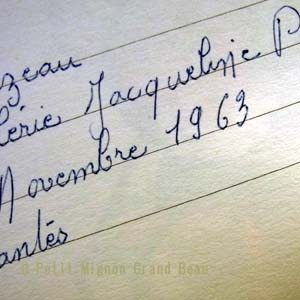 zeau
lérie Jacqueline P
Novembre 1963
antes
© Petit Mignon Grand Beau